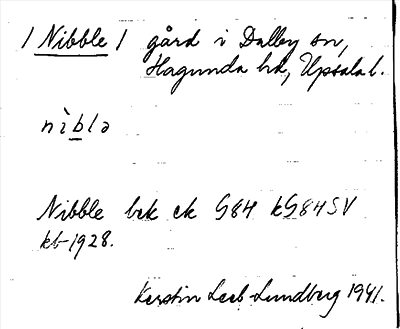 / Nibble / gård i Dalby sn,
Hagunda hd, Upsala l.
nìblə
Nibble bek ek G84 kG84SV
kb-1928.
Kerstin Leeb-Lundberg 1941.